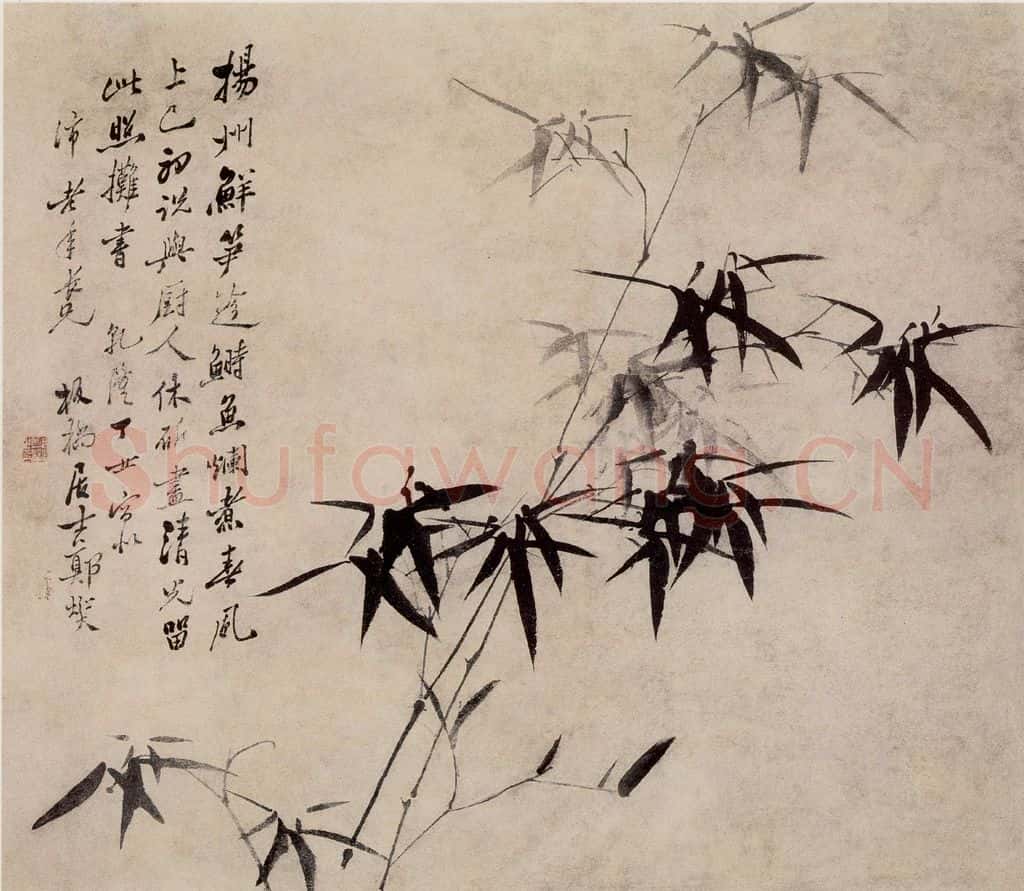 揚州鮮笋趁鰣魚爛煮春風
上巳初說與厨人休斫盡清光留
此照攤書 乾隆丁丑寫似
老年長兄 板橋居士鄭燮
Shufawang.CN